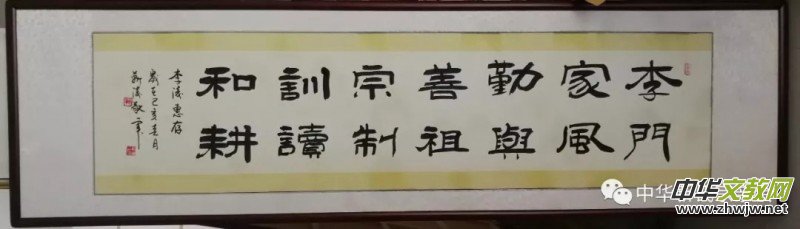 李門
家風
勤與
善祖
宗制
訓讀
和耕
惠存
歲在己亥春月
中华
中华文教网
www.zhwjw.net